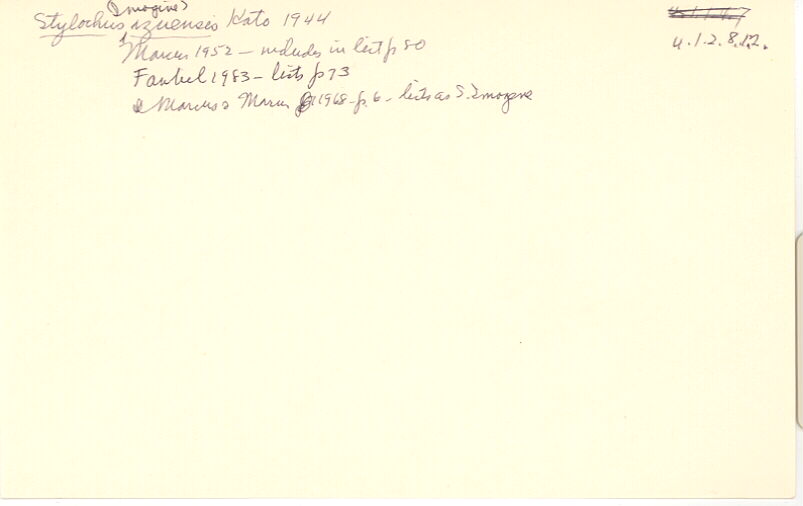 (Imogine)
Stylochus izuensis Kato 1944
Marcus 1952 – includes in list p 80
Faubel 1983 – lists p 73
Marcus & Marcus 1968 – p. 6 – lists as S. Imogine
4.1.2.8.12.